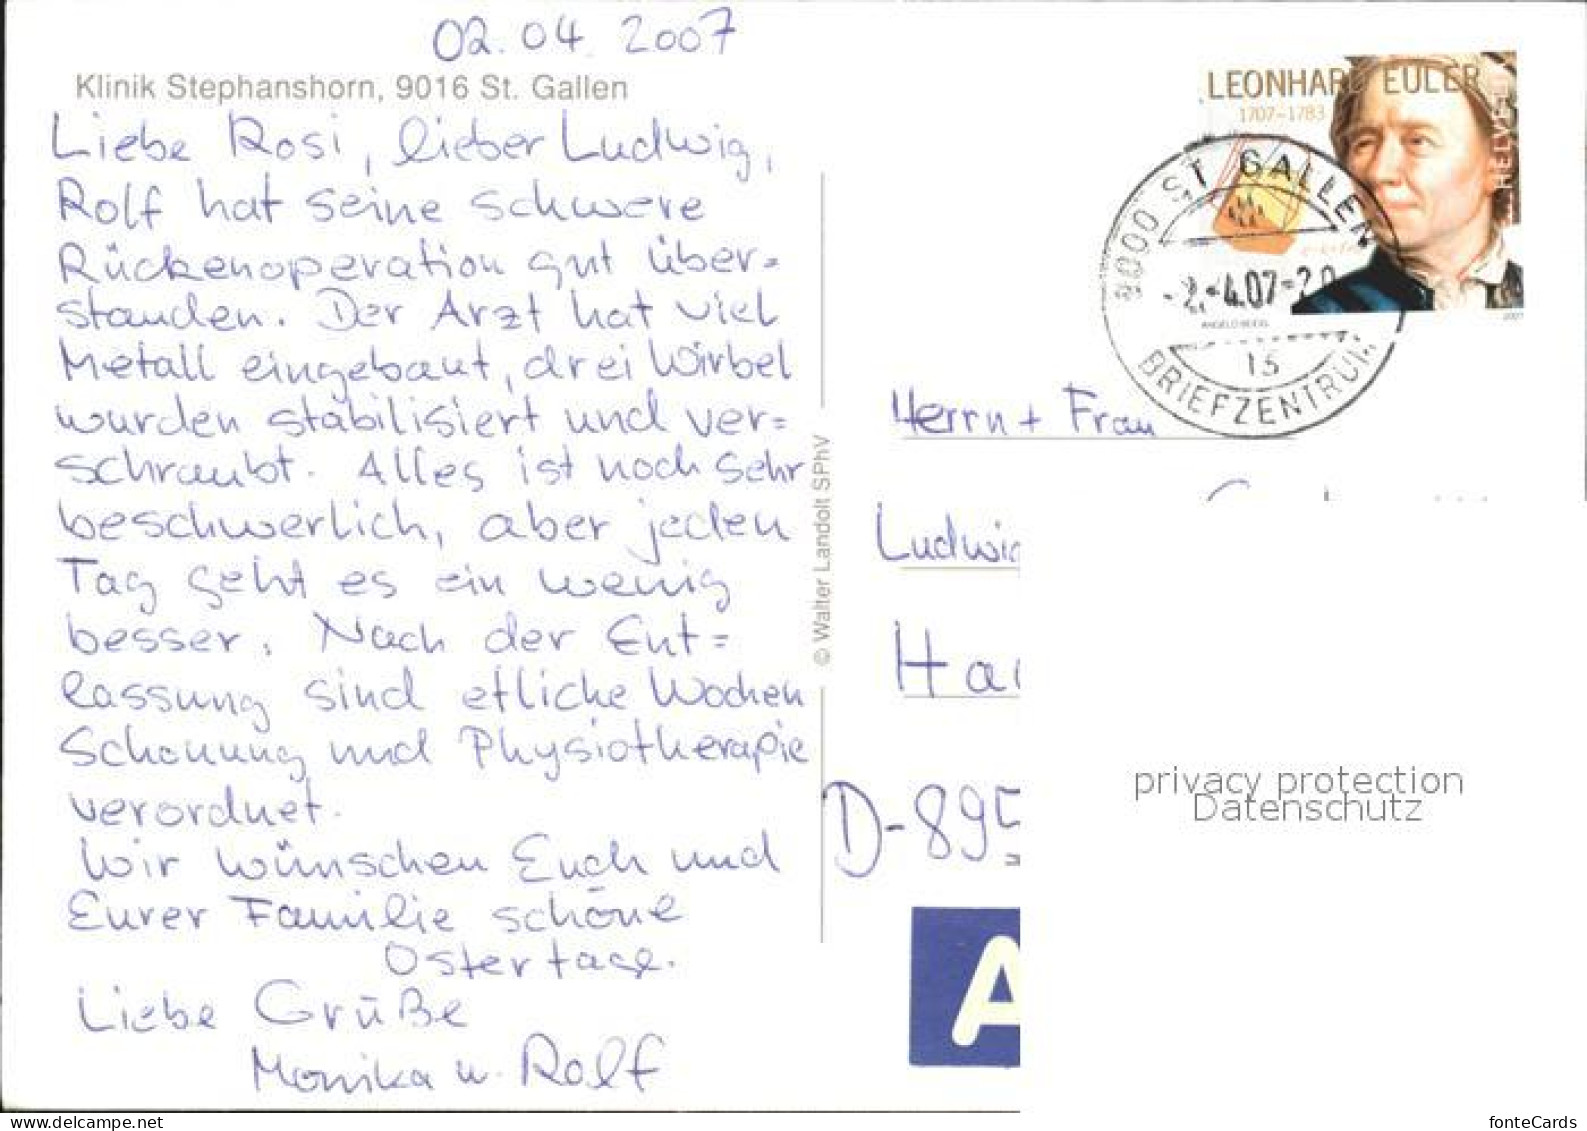 02.04.2007
Klinik Stephanshorn, 9016 St. Gallen
Liebe Rosi, lieber Ludwig,
Rolf hat seine schwere
Rückenoperation gut über=
standen. Der Arzt hat viel
Metall eingebaut, drei Wirbel
wurden stabilisiert und ver=
schraubt. Alles ist noch sehr
beschwerlich, aber jeden
Tag geht es ein wenig
besser. Nach der Ent=
lassung sind etliche Wochen
Schonung und Physiotherapie
verordnet.
Wir wünschen Euch und
Eurer Familie schöne
Ostertage.
Liebe Grüße
Monika u. Rolf
© Walter Landolt SPhV
LEONHARD EULER
1707–1783
HELVETI
ANGELO BOOG
2007
9000 ST. GALLEN
-2.-4.07-20
13
BRIEFZENTRUM
Herrn + Frau
Ludwig
Ha
D-895
A
privacy protection
Datenschutz
fonteCards